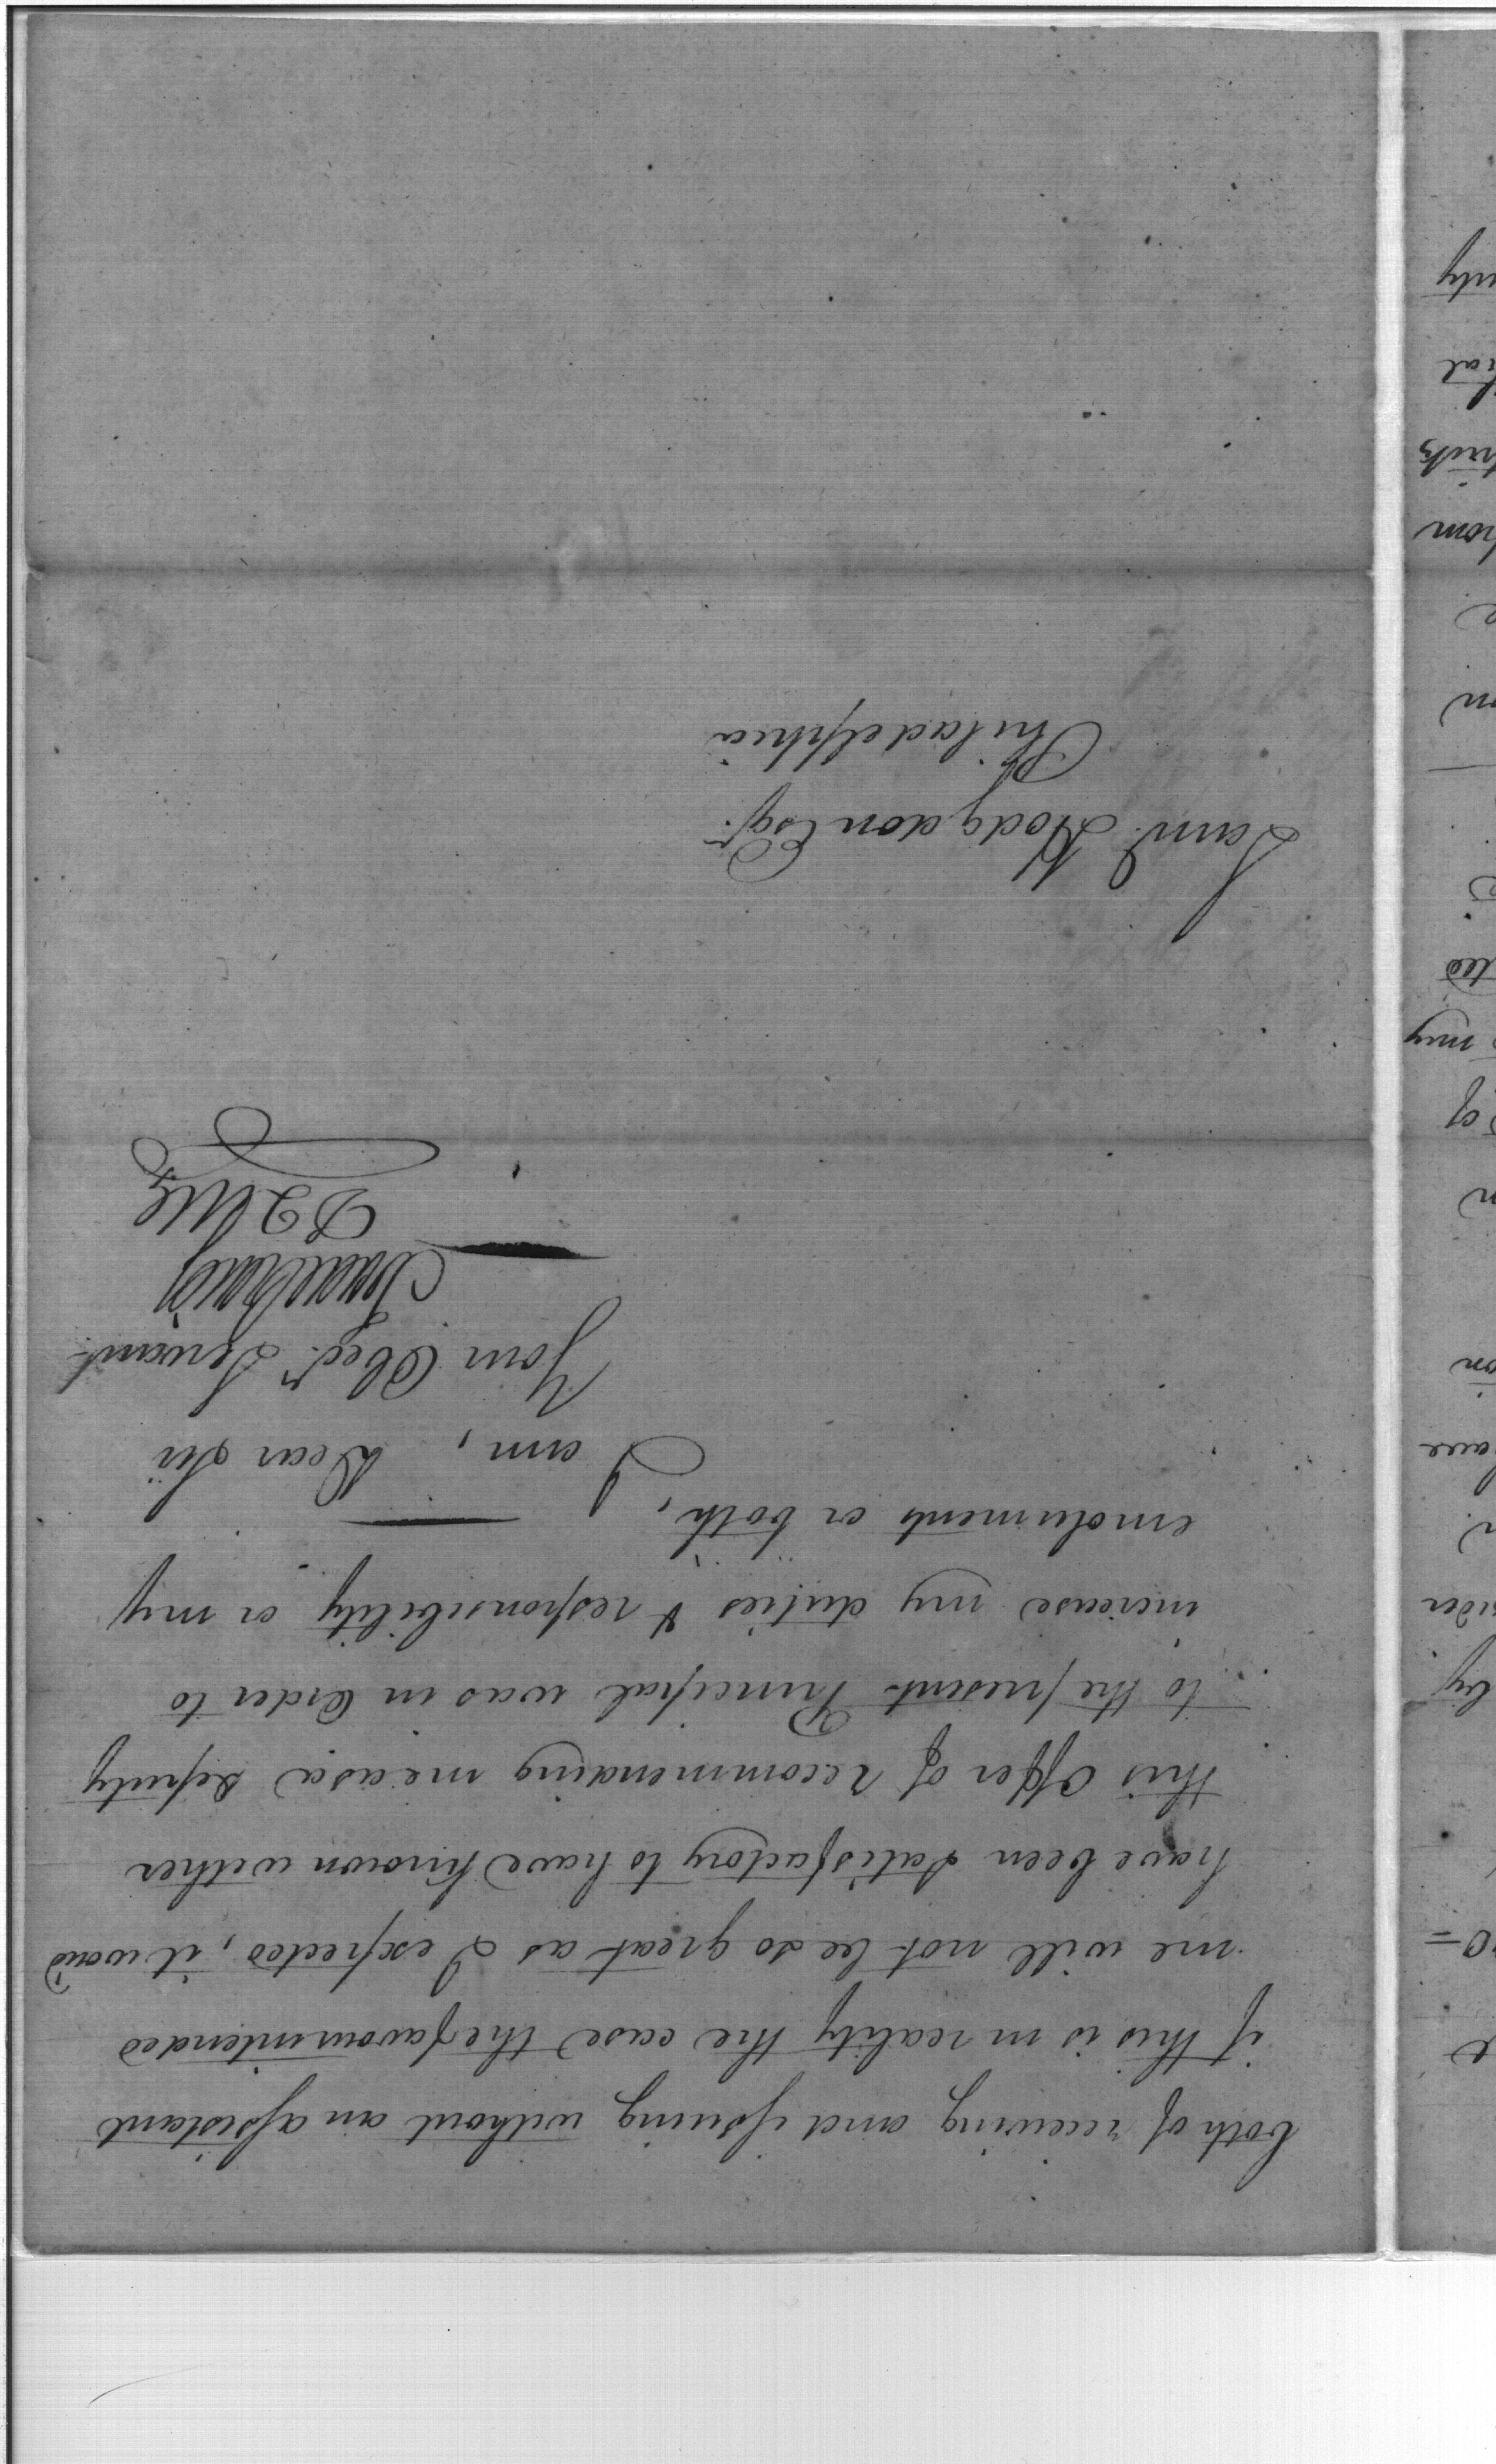 both of receiving and issuing without an assistant
if this is in reality the case the favour intended
me will not be so great as I expected, it woud
have been satisfactory to have known wether
this offer of recommending me as a deputy
to the present Principal was in Order to
increase my duties & responsibility or my
emoluments or both,
I am, Dear Sir
Your Obed.t Servant
Isaac Craig
D Q M G
Saml. Hodgdon Esqr.
Philadelphia